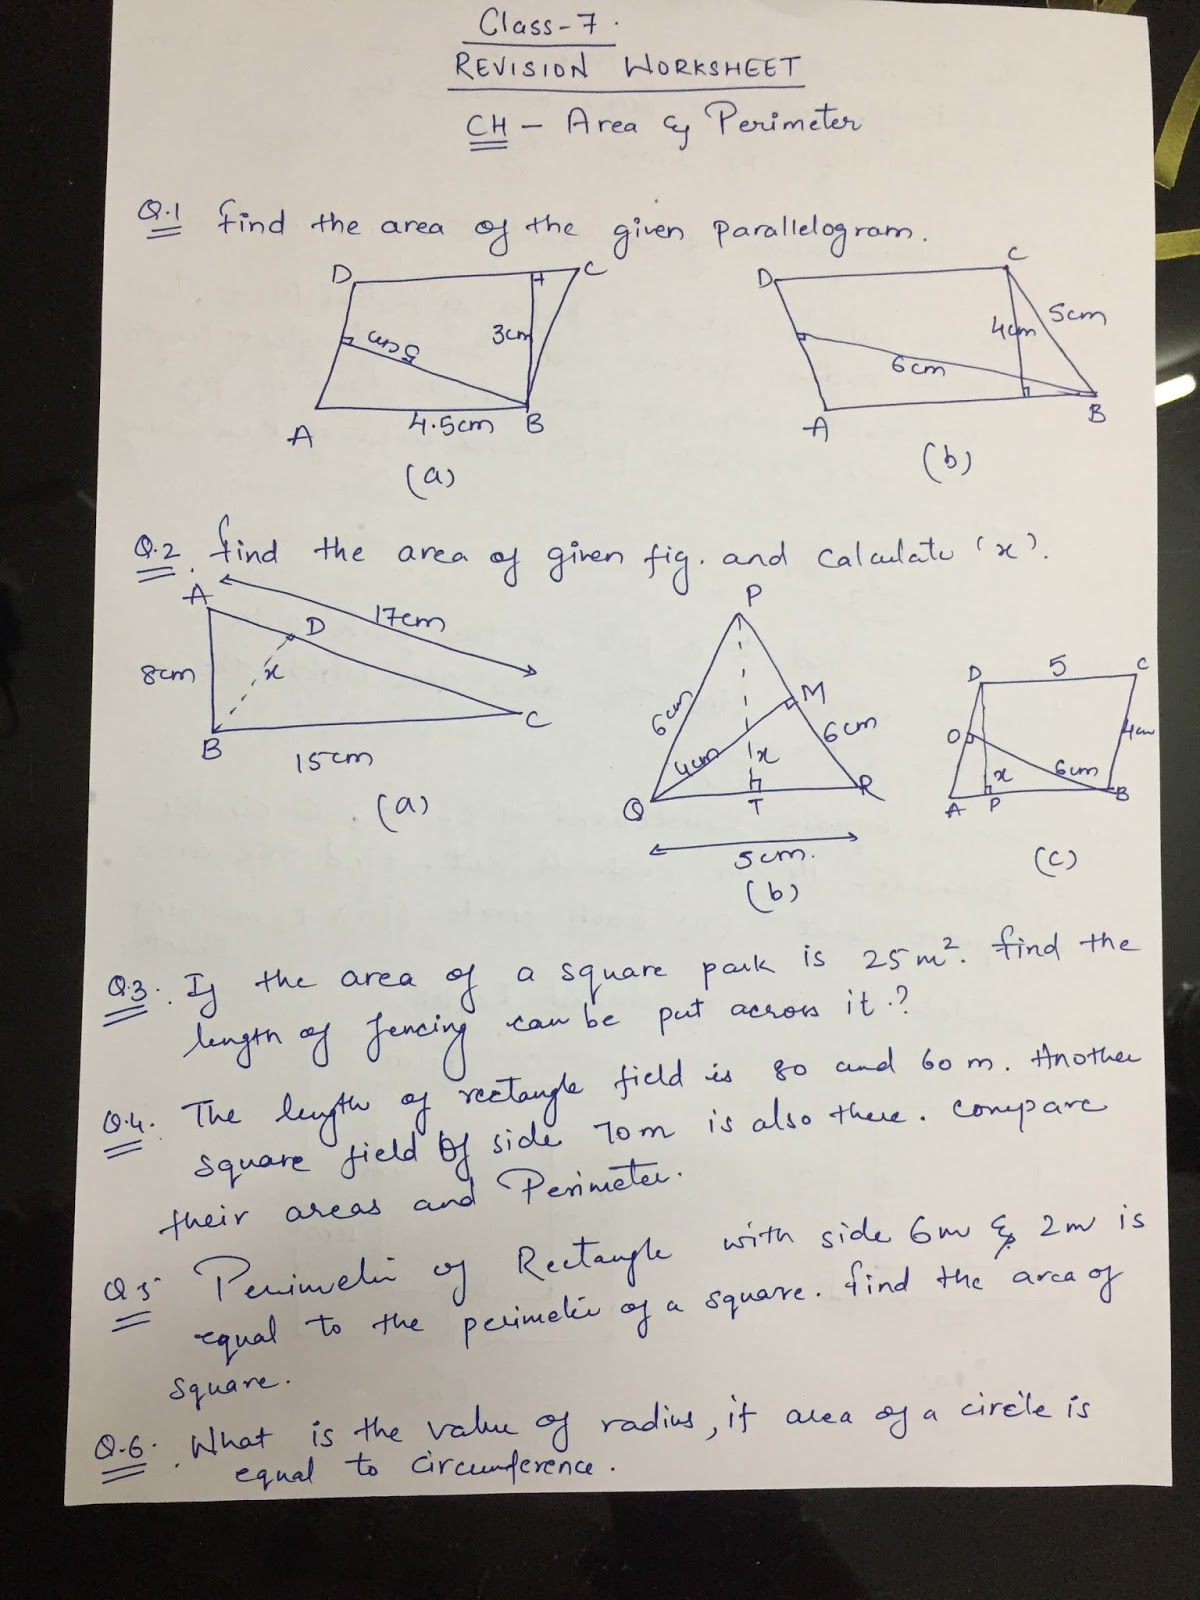 Class-7.
REVISION WORKSHEET
CH - Area & Perimeter
Q.1 find the area of the given parallelogram.
D C
5cm 3cm
A 4.5cm B
(a)
D C
4cm 5cm
6cm
A B
(b)
Q.2. find the area of given fig. and calculate 'x'.
A 17cm
D
8cm x
B 15cm C
(a)
P
6cm M
4cm x 6cm
Q T R
5cm.
(b)
D 5 C
O 4cm
x 6cm
A P B
(c)
Q.3. If the area of a square park is 25m². find the
length of fencing can be put across it.?
Q.4. The length of rectangle field is 80 and 60 m. Another
square field of side 70m is also there. compare
their areas and Perimeter.
Q5 Perimeter of Rectangle with side 6m & 2m is
equal to the perimeter of a square. find the area of
square.
Q.6. What is the value of radius, if area of a circle is
equal to circumference.